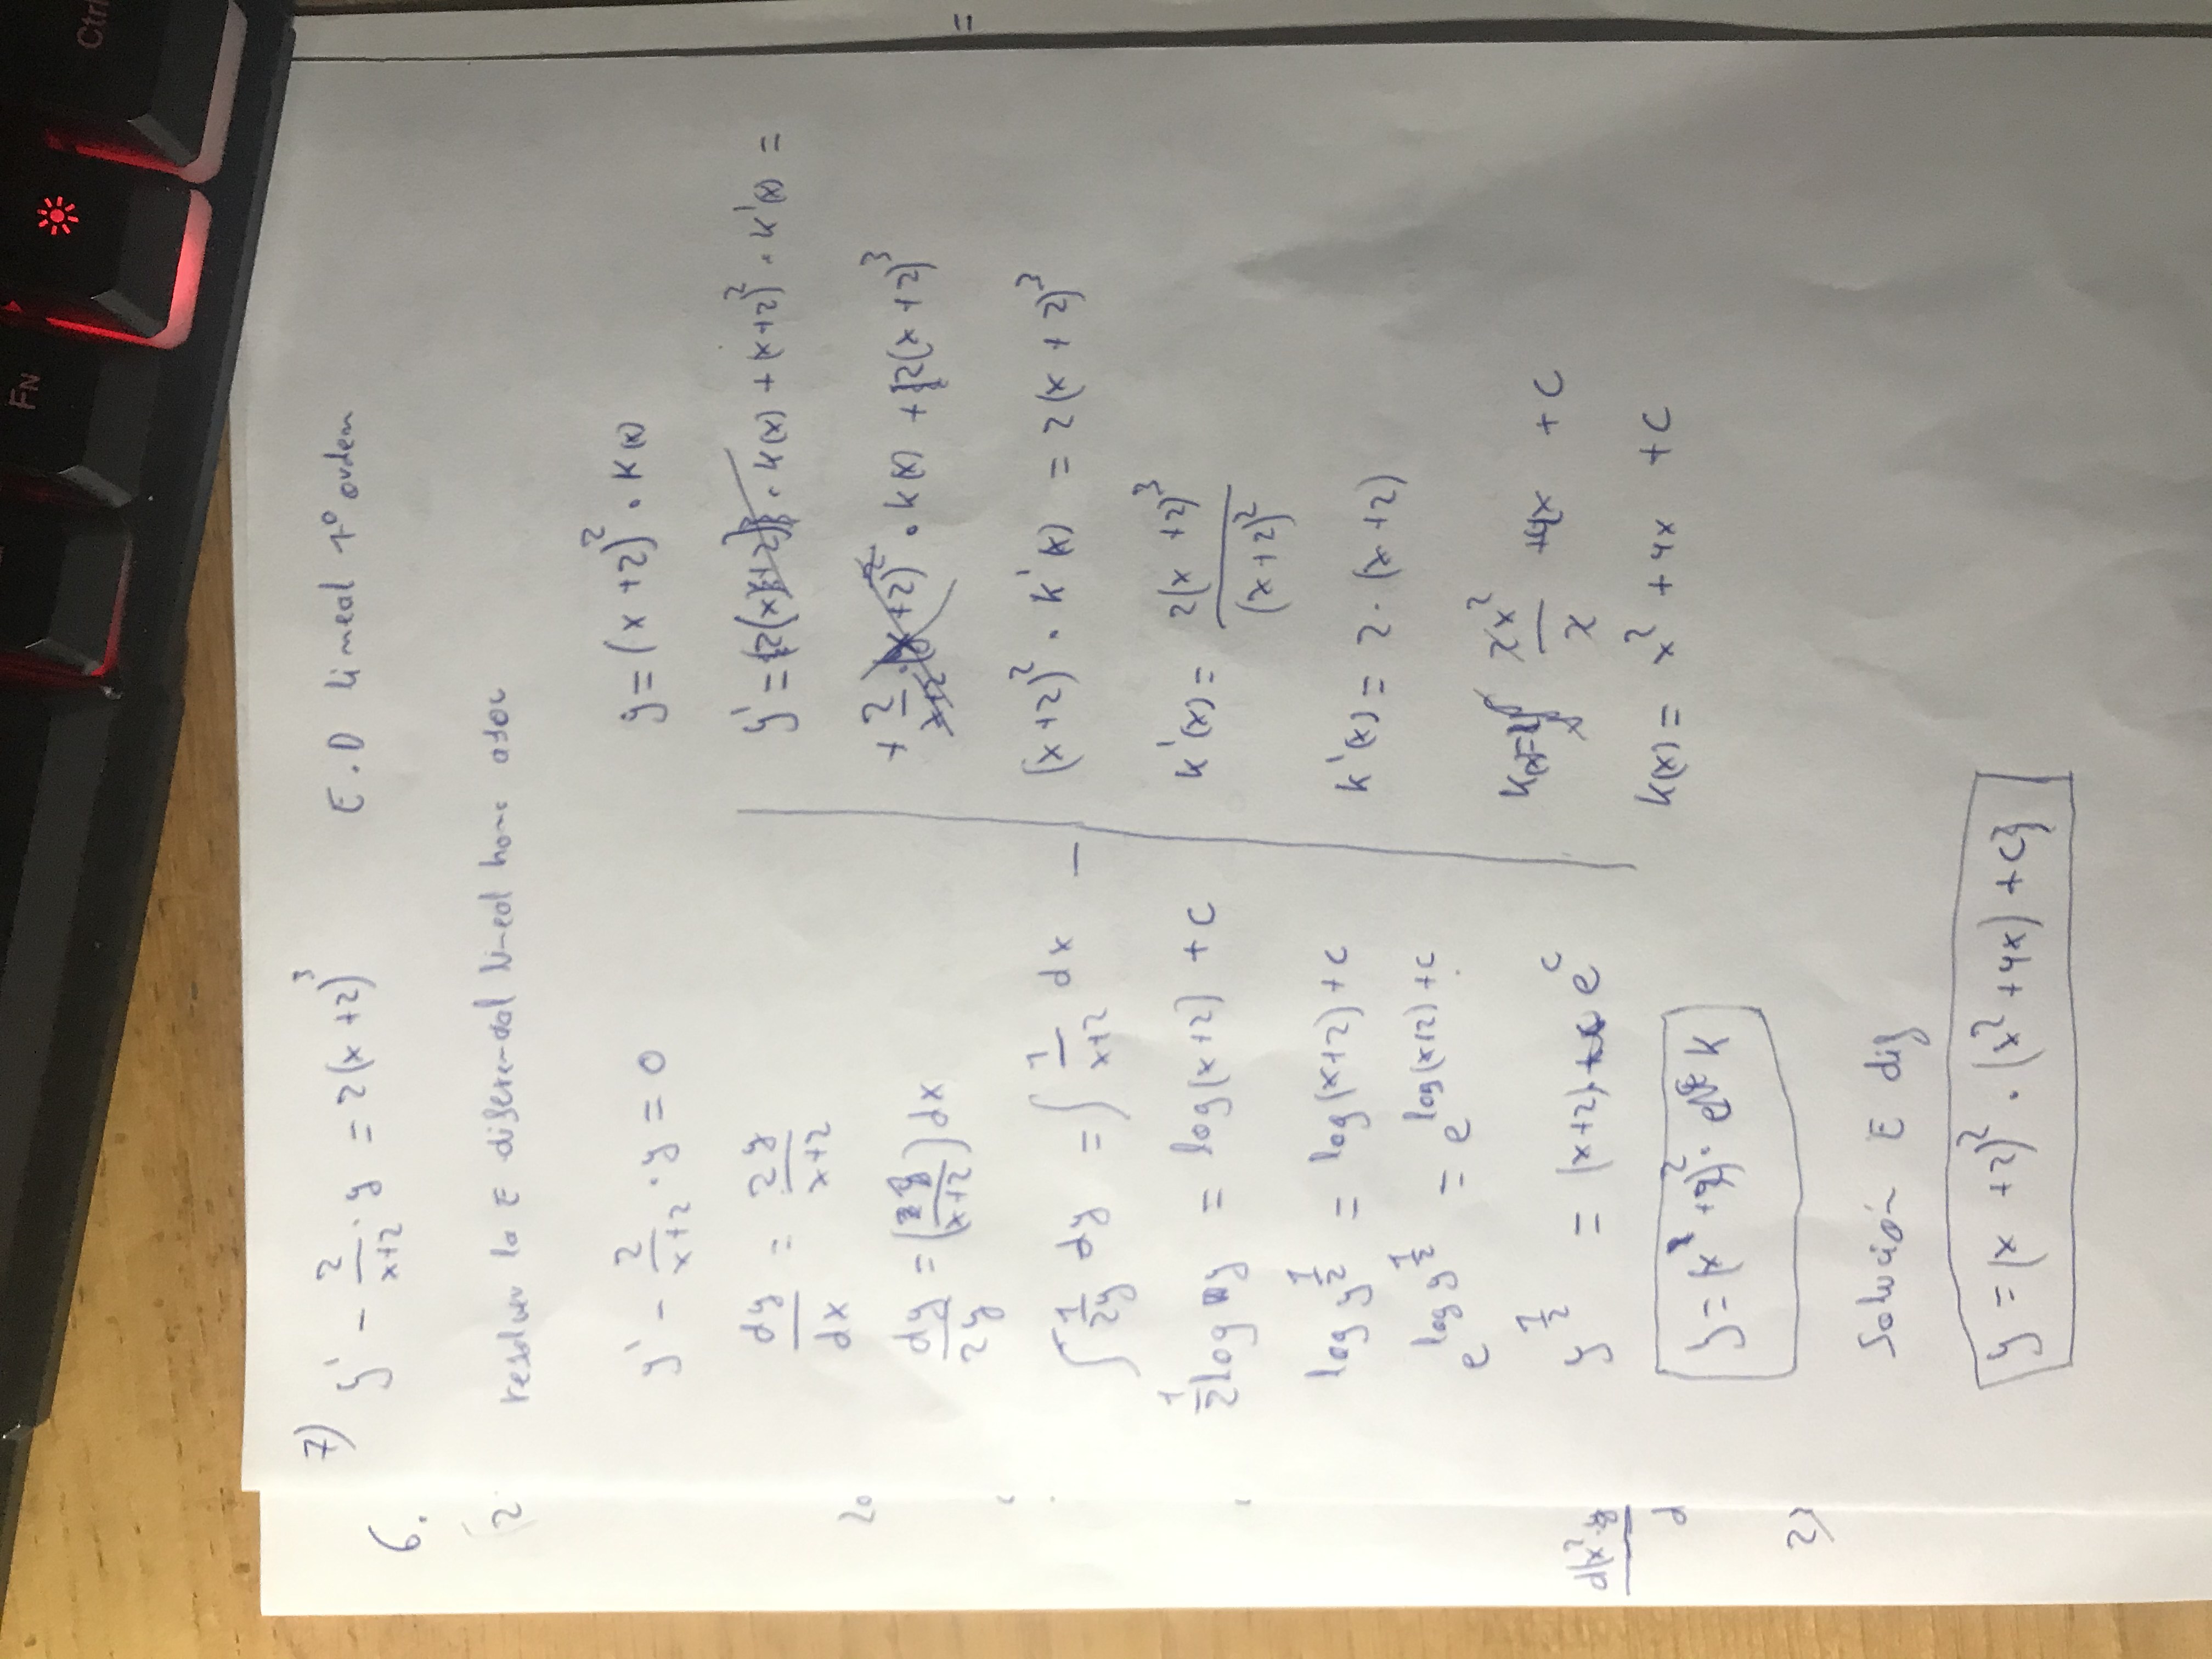 FN
Ctrl
7) y' - 2/(x+2) · y = 2(x+2)^3 E.D lineal 1º orden
6.
resolver la E diferencial lineal homo asoc
2
y' - 2/(x+2) · y = 0
dy/dx = 2y/(x+2)
dy/2y = ( /(x+2)) dx
∫ 1/2y dy = ∫ 1/(x+2) dx
1/2 log y = log(x+2) + c
log y^(1/2) = log(x+2) + c
e^(log y^(1/2)) = e^(log(x+2) + c)
y^(1/2) = (x+2) · e^c
y = (x+2)^2 · k
y = (x+2)^2 · k(x)
y' = 2(x+2) · k(x) + (x+2)^2 · k'(x) =
+ 2/(x+2) · (x+2)^2 · k(x) + 2(x+2)^3
(x+2)^2 · k'(x) = 2(x+2)^3
k'(x) = 2(x+2)^3/(x+2)^2
k'(x) = 2 · (x+2)
k(x) = 2x^2/2 + 4x + c
k(x) = x^2 + 4x + c
Solución E dif
y = (x+2)^2 · (x^2 + 4x) + c}
20
d(x^2·y
d
23
=